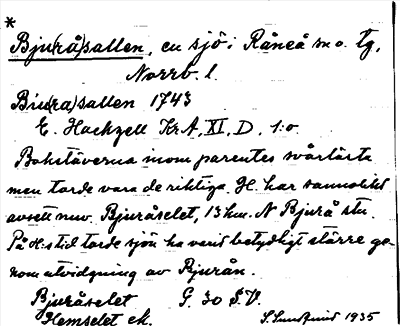 *
Bju(rå)sallen, en sjö i Råneå sn o. tg,
Norrb. l.
Biu(ra)sallen 1743
E. Hackzell KrA, XI, D, 1:o
Bokstäverna inom parentes svårlästa
men torde vara de riktiga. H. har sannolikt
avsett nuv. Bjuråselet, 13 km. N Bjurå stn.
På H:s tid torde sjön ha varit betydligt större ge-
nom utvidgning av Bjurån.
Bjuråselet G. 30 S.V.
Hemselet ek. S. Sundquist 1935